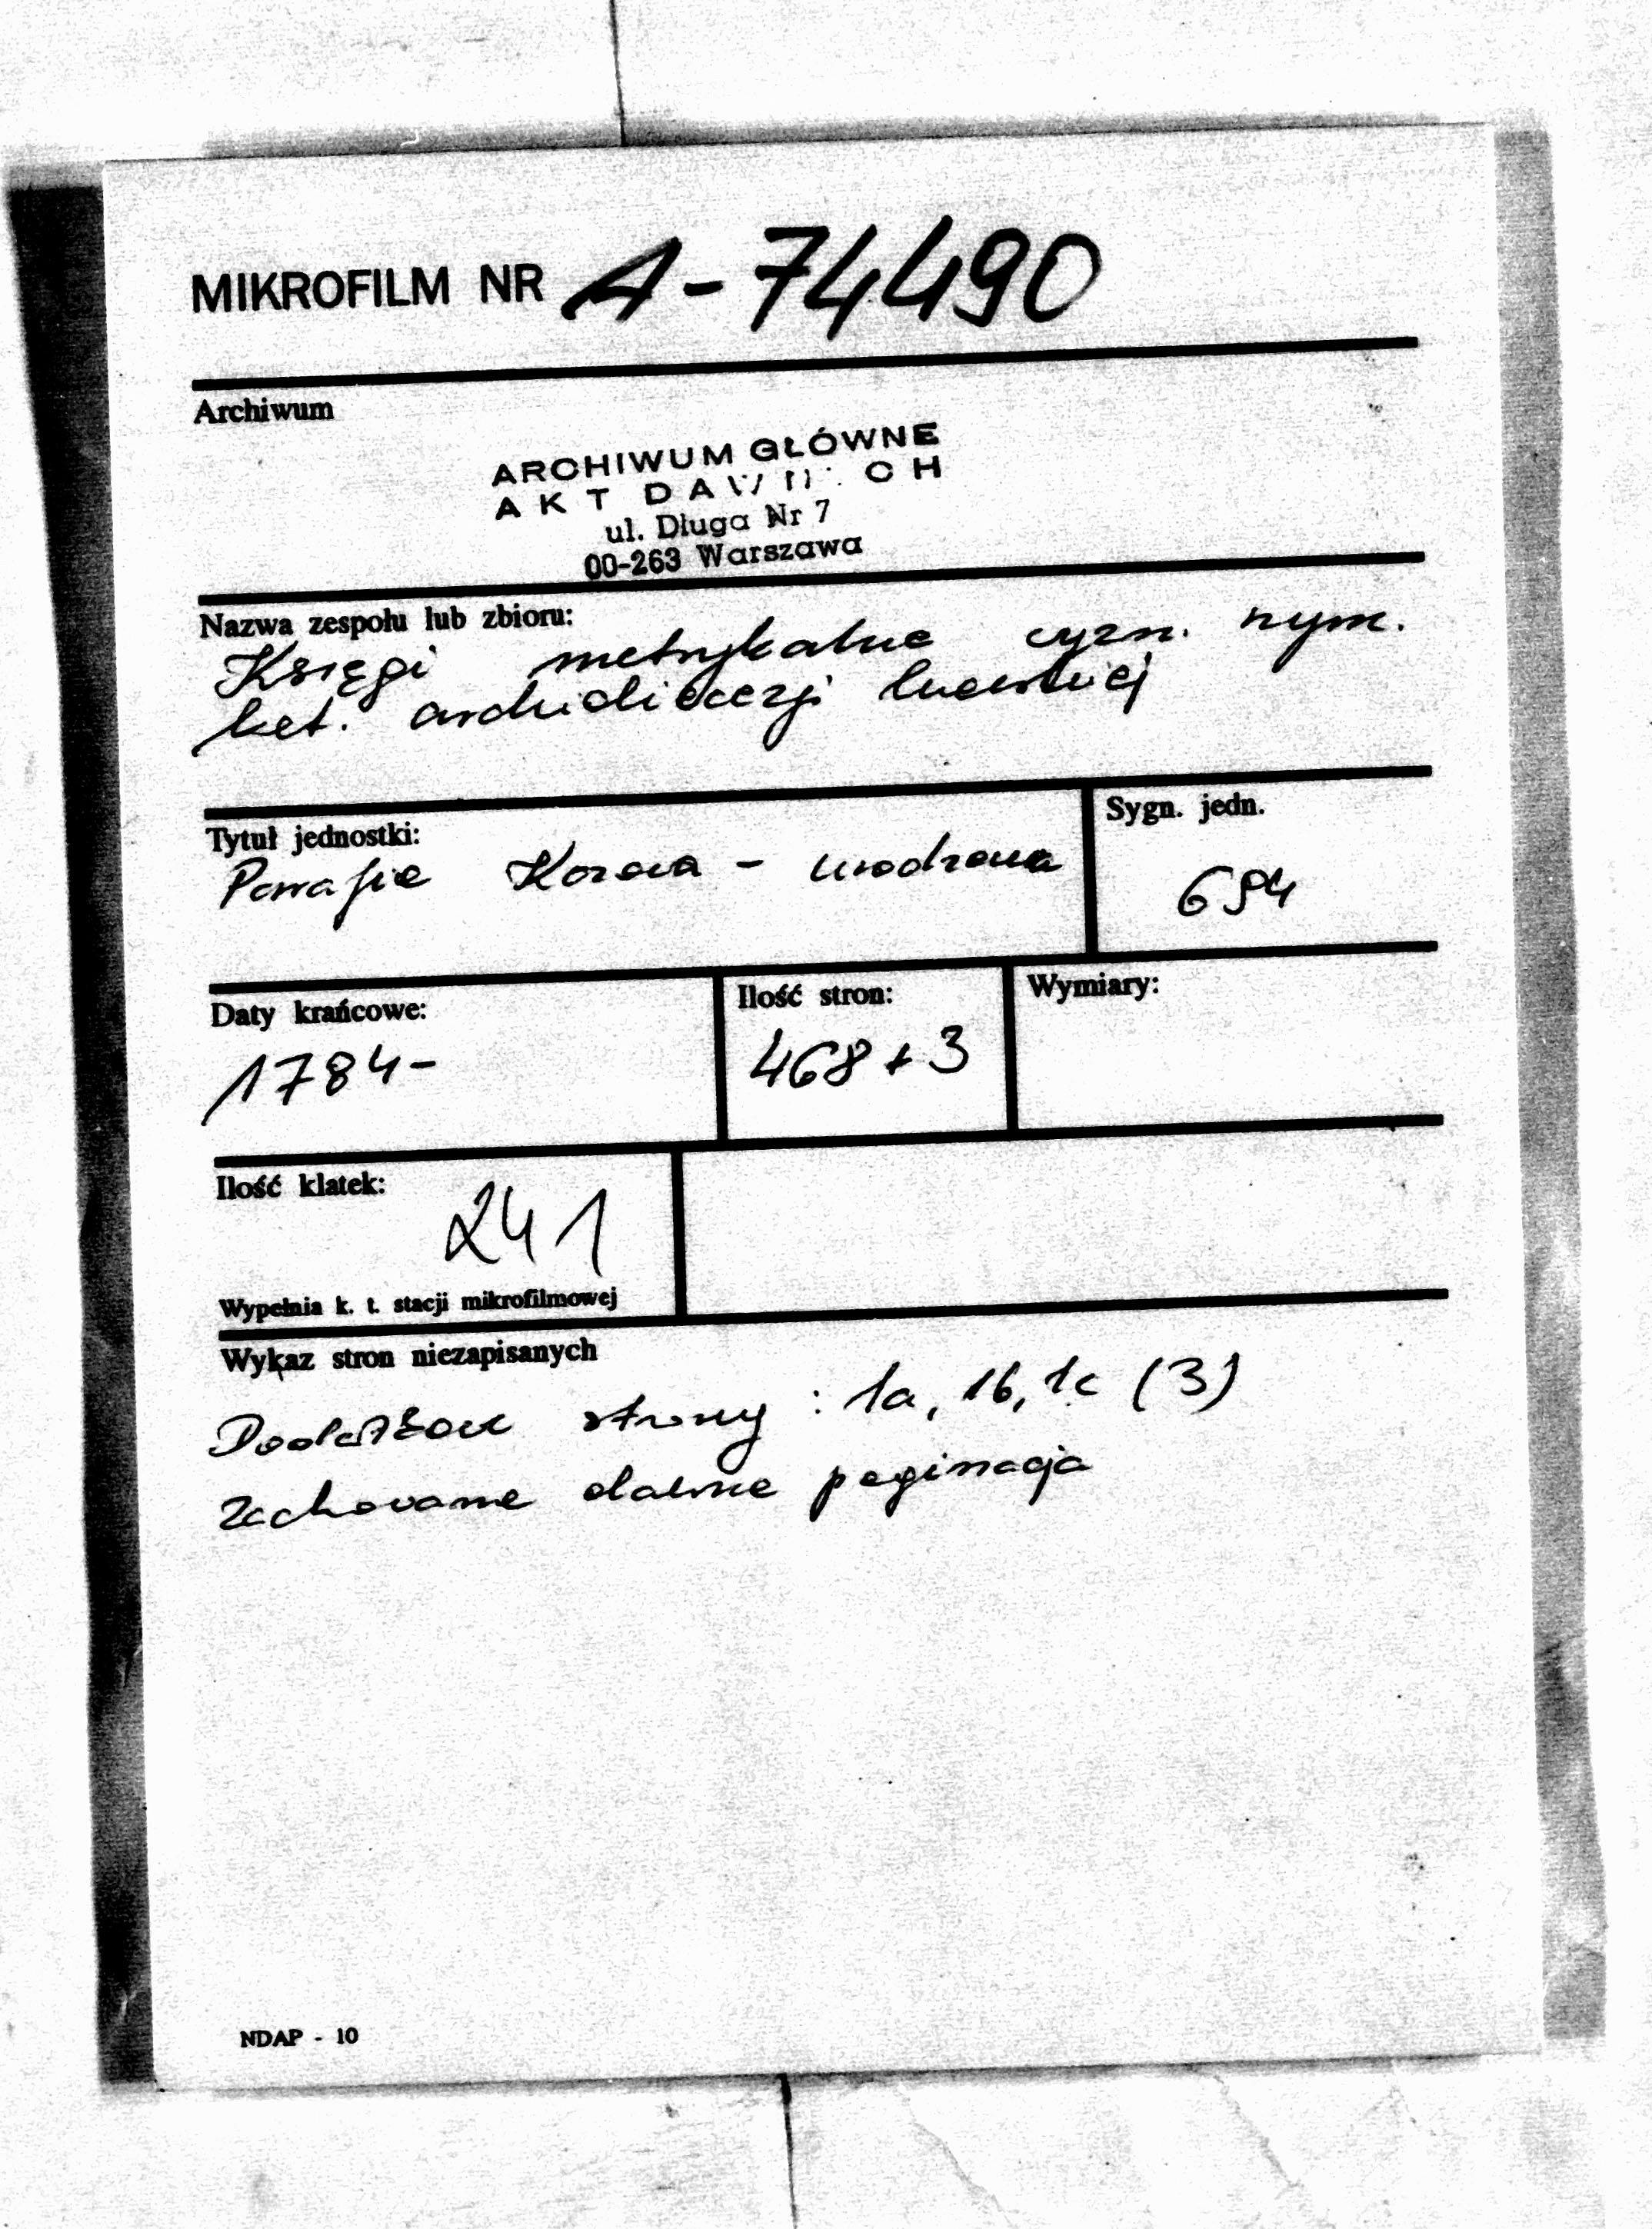 MIKROFILM NR A-74490
Archiwum
ARCHIWUM GŁÓWNE
AKT DAWNYCH
ul. Długa Nr 7
00-263 Warszawa
Nazwa zespołu lub zbioru:
Księgi metrykalne wyzn. rzym.
kat. archidiecezji lwowskiej
Tytuł jednostki:
Parafia Kozowa - urodzenia
Sygn. jedn.
694
Daty krańcowe:
1784-
Ilość stron:
468+3
Wymiary:
Ilość klatek:
241
Wypełnia k. t. stacji mikrofilmowej
Wykaz stron niezapisanych
strony : 1a, 1b, 1c (3)
Zachowane dawne paginacja
NDAP - 10